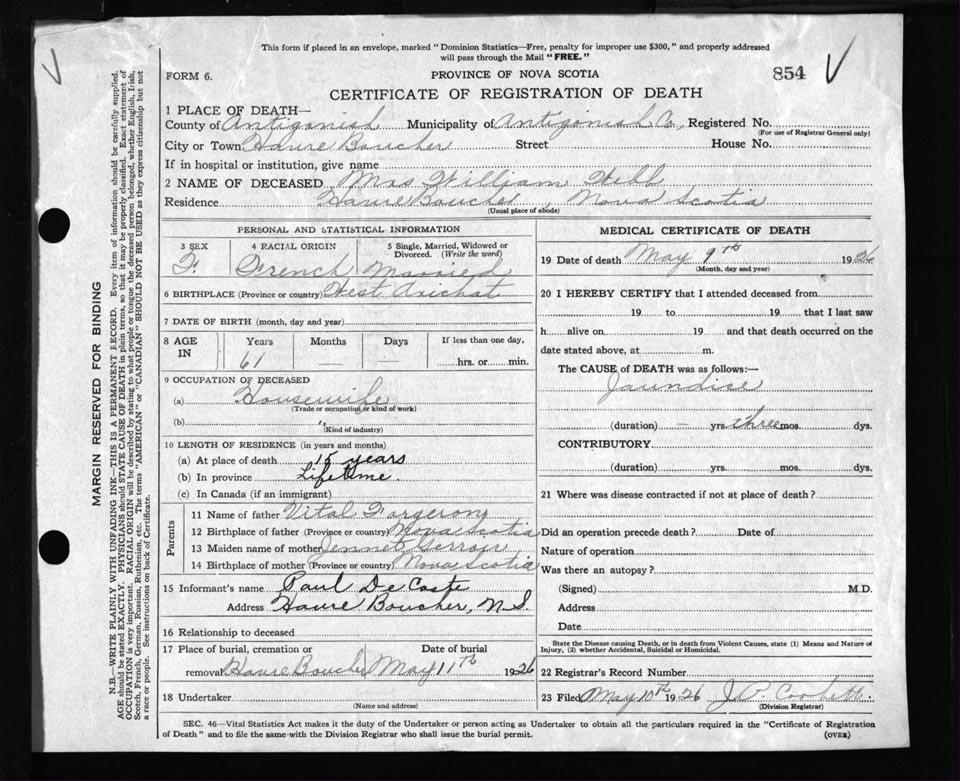 This form if placed in an envelope, marked "Dominion Statistics—Free, penalty for improper use $300," and properly addressed
will pass through the Mail "FREE."
FORM 6.
PROVINCE OF NOVA SCOTIA
854
CERTIFICATE OF REGISTRATION OF DEATH
1 PLACE OF DEATH—
County of Antigonish Municipality of Antigonish Co, Registered No.
(For use of Registrar General only)
City or Town Havre Boucher Street House No.
If in hospital or institution, give name
2 NAME OF DECEASED Mrs William Webb
Residence Havre Boucher, Nova Scotia
(Usual place of abode)
PERSONAL AND STATISTICAL INFORMATION
3 SEX 4 RACIAL ORIGIN 5 Single, Married, Widowed or
Divorced. (Write the word)
F. French Married
6 BIRTHPLACE (Province or country) West Arichat
7 DATE OF BIRTH (month, day and year)
8 AGE IN Years Months Days If less than one day,
61 — — hrs. or min.
9 OCCUPATION OF DECEASED
(a) Housewife
(Trade or occupation or kind of work)
(b) "
(Kind of industry)
10 LENGTH OF RESIDENCE (in years and months)
(a) At place of death 15 years
(b) In province Lifetime.
(c) In Canada (if an immigrant)
Parents
11 Name of father Vital Forgerong
12 Birthplace of father (Province or country) Nova Scotia
13 Maiden name of mother Jennet
14 Birthplace of mother (Province or country) Nova Scotia
15 Informant's name Paul De Coste
Address Havre Boucher, N.S.
16 Relationship to deceased
17 Place of burial, cremation or Date of burial
removal Havre Boucher May 11th 1926
18 Undertaker
(Name and address)
MEDICAL CERTIFICATE OF DEATH
19 Date of death May 9th 1926
(Month, day and year)
20 I HEREBY CERTIFY that I attended deceased from
19 to 19 that I last saw
h alive on 19 and that death occurred on the
date stated above, at m.
The CAUSE of DEATH was as follows:—
Jaundice
(duration) — yrs. three mos. dys.
CONTRIBUTORY
(duration) yrs. mos. dys.
21 Where was disease contracted if not at place of death?
Did an operation precede death? Date of
Nature of operation
Was there an autopsy?
(Signed) M.D.
Address
Date
State the Disease causing Death, or in death from Violent Causes, state (1) Means and Nature of
Injury, (2) whether Accidental, Suicidal or Homicidal.
22 Registrar's Record Number
23 Filed May 10th 1926 J.P. Corbett.
(Division Registrar)
SEC. 46—Vital Statistics Act makes it the duty of the Undertaker or person acting as Undertaker to obtain all the particulars required in the "Certificate of Registration
of Death" and to file the same with the Division Registrar who shall issue the burial permit.
(OVER)
MARGIN RESERVED FOR BINDING
N.B.—WRITE PLAINLY WITH UNFADING INK—THIS IS A PERMANENT RECORD. Every item of information should be carefully supplied.
AGE should be stated EXACTLY. PHYSICIANS should STATE CAUSE OF DEATH in plain terms, so that it may be properly classified. Exact statement of
OCCUPATION is very important. RACIAL ORIGIN will be described by stating to what people or tongue the deceased person belonged, whether English, Irish,
Scotch, French, German, Russian, Ruthenian, etc. The terms "AMERICAN" or "CANADIAN" SHOULD NOT BE USED as they express citizenship but not
a race or people. See instructions on back of Certificate.